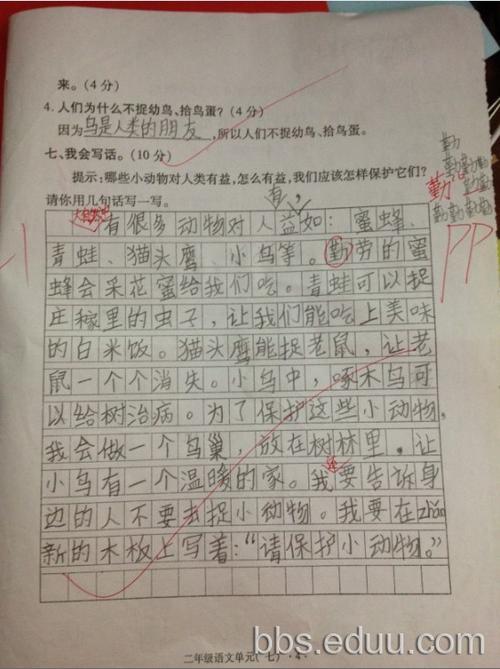 来。(4分)
4.人们为什么不捉幼鸟、拾鸟蛋?(4分)
因为鸟是人类的朋友,所以人们不捉幼鸟、拾鸟蛋。
七、我会写话。(10分)
提示:哪些小动物对人类有益,怎么有益,我们应该怎样保护它们?
请你用几句话写一写。
有,
大自然里有很多动物对人益如:蜜蜂、
青蛙、猫头鹰、小鸟等。勤劳的蜜
蜂会采花蜜给我们吃。青蛙可以捉
庄稼里的虫子,让我们能吃上美味
的白米饭。猫头鹰能捉老鼠,让老
鼠一个个消失。小鸟中,啄木鸟可
以给树治病。为了保护这些小动物,
我会做一个鸟巢,放在树林里.让
小鸟有一个温暖的家。我还要告诉身
边的人不要去捉小动物。我要在zhǎn
新的木板上写着:“请保护小动物。”
勤
勤勤勤
勤勤勤勤
二年级语文单元(七)·4·
bbs.eduu.com